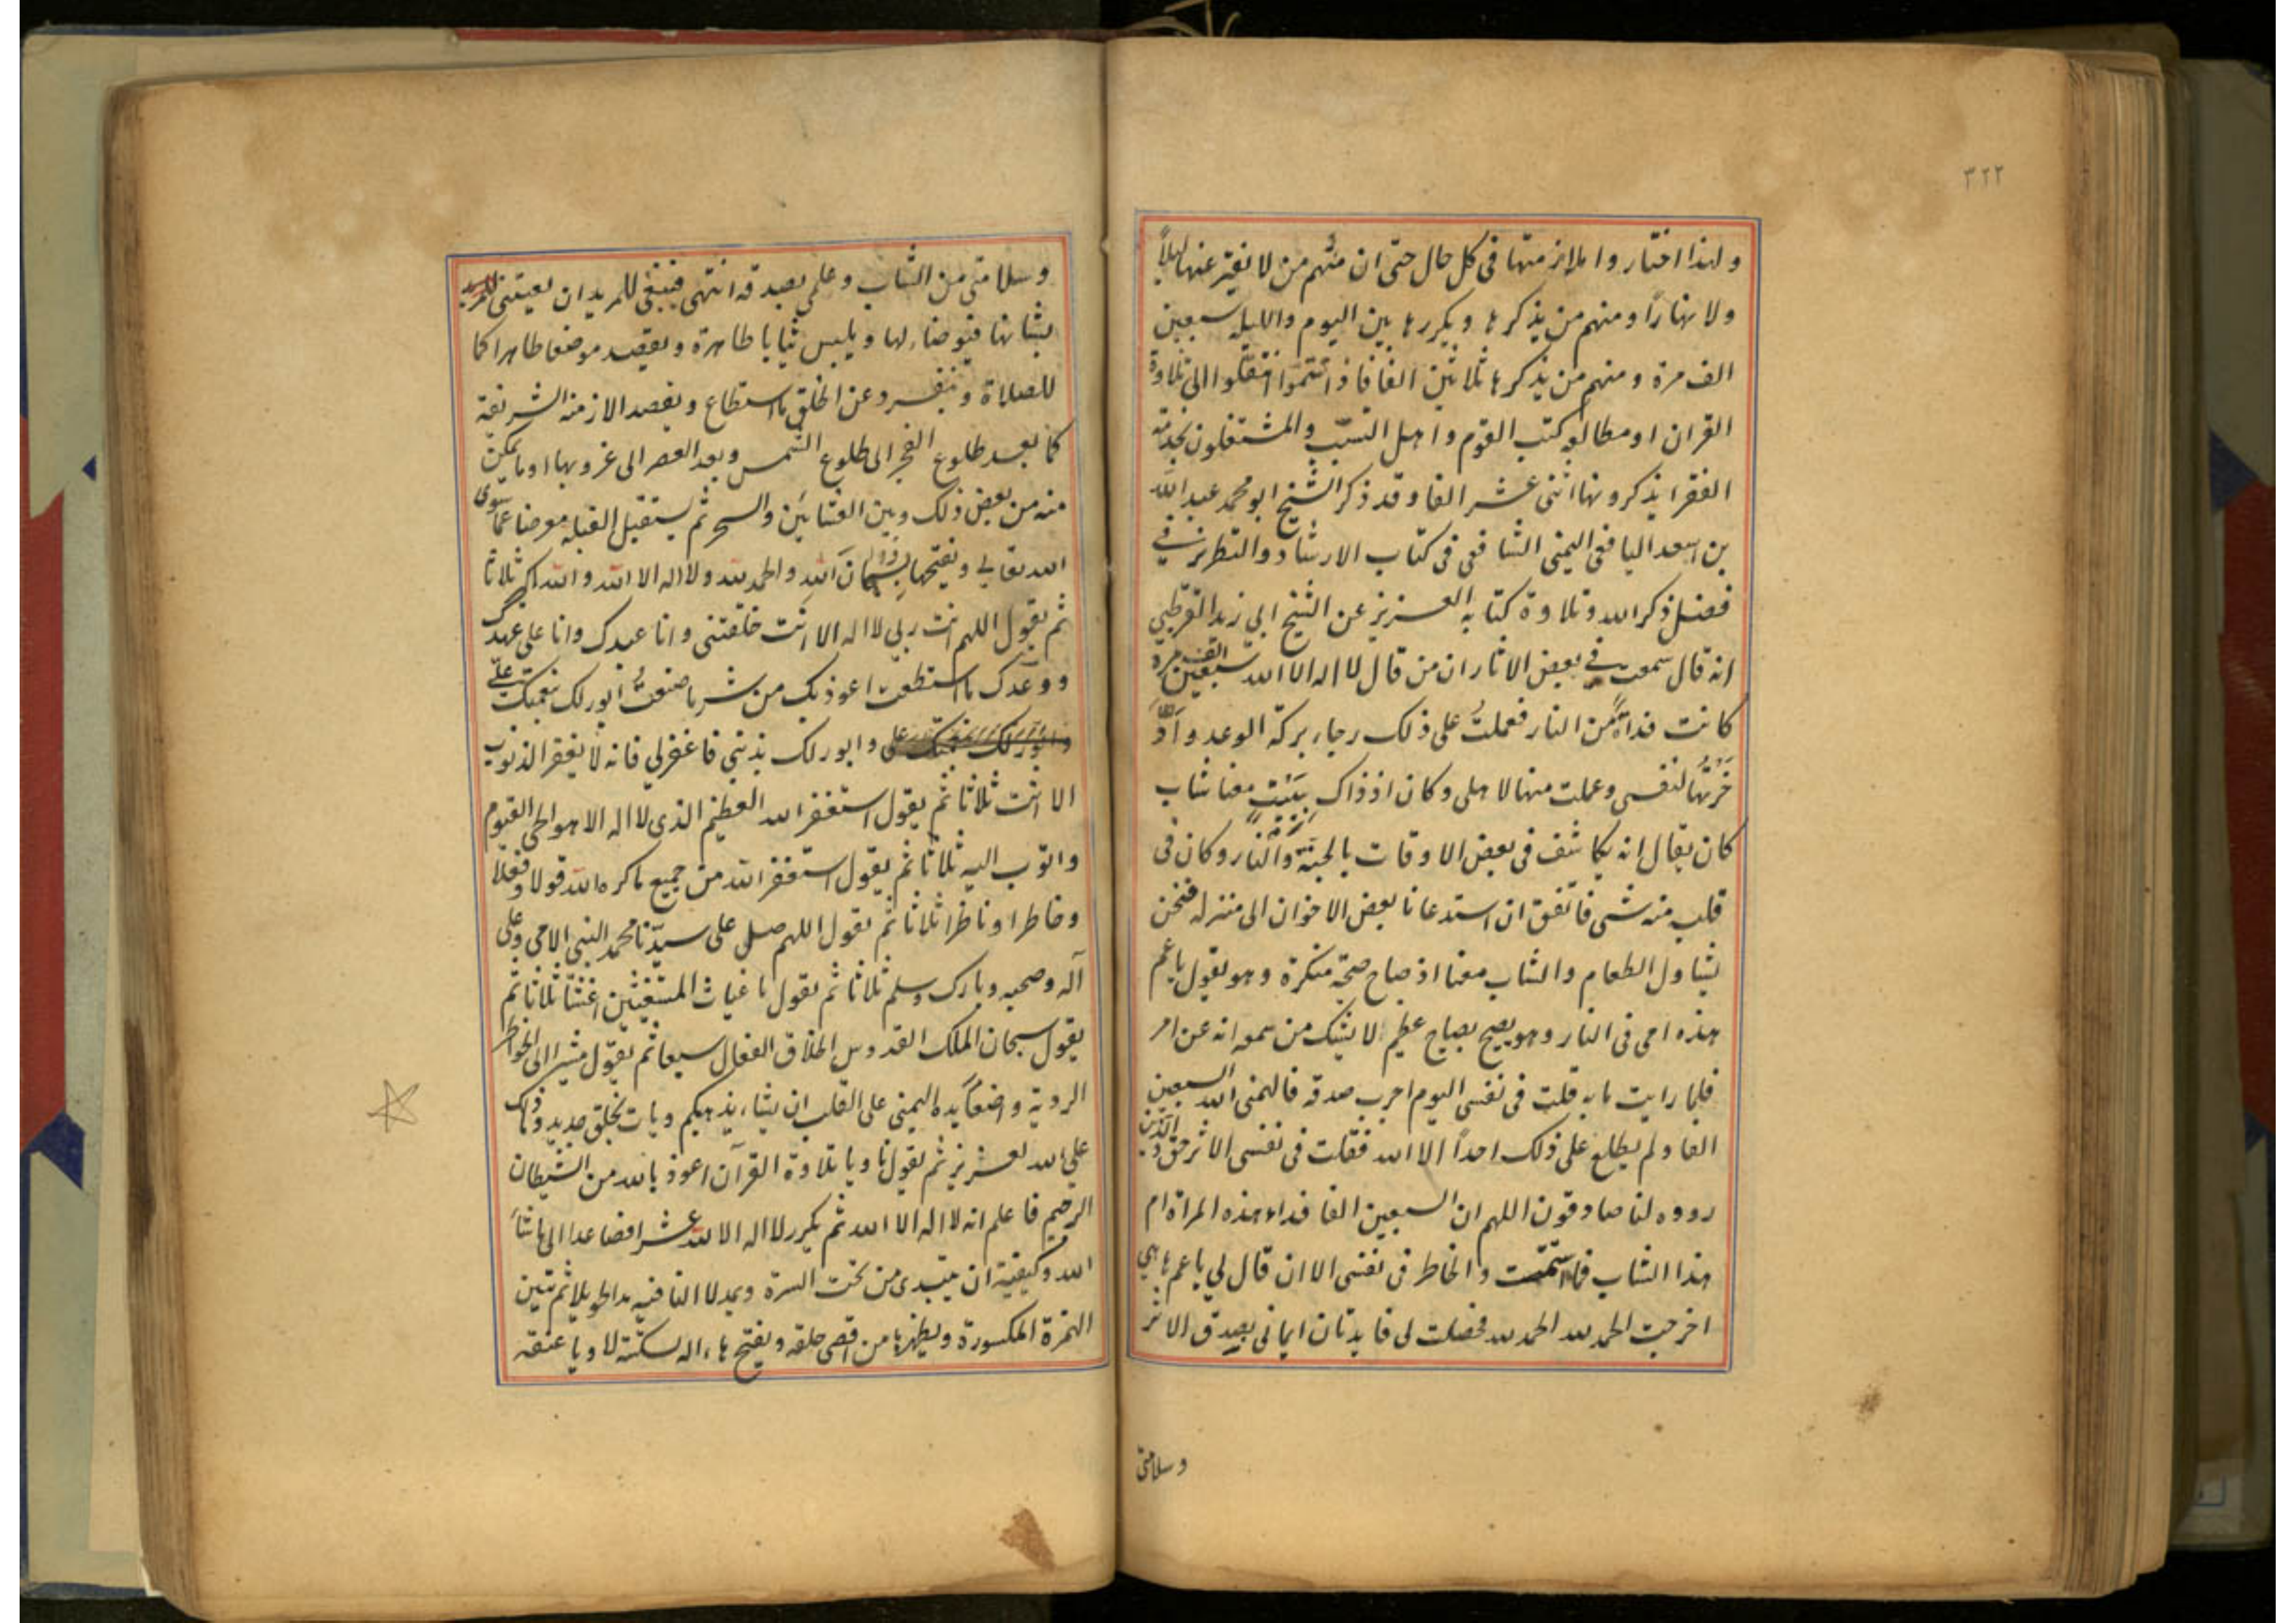 ٣٢٢
ولهذا اختاروا ملازمتها فى كل حال حتى ان منهم من لا يفتر عنها ليلاً
ولا نهارًا ومنهم من يذكرها ويكررها بين اليوم والليلة سبعين
الف مرة ومنهم من يذكرها ثلاثين الفا فاذا تتموا انتقلوا الى تلاوة
القران او مطالعه كتب القوم واهل التسبّب والمشتغلون بخدمة
الفقرا يذكرونها اثنى عشر الفا وقد ذكر الشيخ ابو محمد عبد الله
بن اسعد اليافعى اليمنى الشافعى فى كتاب الارشاد والتطريز في
فضل ذكر الله وتلاوة كتابه العزيز عن الشيخ ابي زيد القرطبي
انه قال سمعت في بعض الاثار ان من قال لا اله الا الله سبعين الف مرة
كانت فداءً من النار فعملتُ على ذلك رجاء بركة الوعد وادّ
خرتها لنفسى وعملت منها لاهلى وكان اذ ذاك يبيت معنا شاب
كان يقال انه يكاشف فى بعض الاوقات بالجنة والنار وكان فى
قلبى منه شى فاتفق ان استدعانا بعض الاخوان الى منزله فنحن
نتناول الطعام والشاب معنا اذ صاح صيحة منكرة وهو يقول يا عم
هذه امى فى النار وهو يصيح بصياح عظيم لا يشك من سمعه انه عن امر
فلما رايت ما به قلت فى نفسى اليوم اجرب صدقه فالهمنى الله السبعين
الفا ولم يطلع على ذلك احداً الا الله فقلت فى نفسى الاثر حق والذين
رووه لنا صادقون اللهم ان السبعين الفا فداء هذه المراة ام
هذا الشاب فما استتمت والخاطر فى نفسى الا ان قال لي يا عم ها هي
اخرجت الحمد لله الحمد لله فحصلت لى فايدتان ايمانى بصدق الاثر
وسلامتى
وسلامتى من الشاب وعلمى بصدقه انتهى فينبغى للمريد ان يعتنى
بشانها فيتوضاء لها ويلبس ثيابا طاهرة ويقصد موضعا طاهرا كما
للصلاة وينفرد عن الخلق ما استطاع ويقصد الازمنة الشريفة
كما بعد طلوع الفجر الى طلوع الشمس وبعد العصر الى غروبها او ما يمكن
منه من بعض ذلك وبين العشائين والسحر ثم يستقبل القبله معرضا عما سوى
الله تعالى ويفتتحها بسبحان الله والحمد لله ولا اله الا الله والله اكبر ثلاثا
ثم يقول اللهم انت ربي لا اله الا انت خلقتنى وانا عبدك وانا على عهدك
ووعدك ما استطعت اعوذ بك من شر ما صنعتُ ابور لك بنعمتك علىّ
وابور لك بنعمتك على وابور لك بذنبى فاغفر لي فانه لا يغفر الذنوب
الا انت ثلاثا ثم يقول استغفر الله العظيم الذى لا اله الا هو الحى القيوم
واتوب اليه ثلاثا ثم يقول استغفر الله من جميع ما كره الله قولا وفعلا
وخاطرا وناظرا ثلاثا ثم يقول اللهم صلى على سيدنا محمد النبى الامى وعلى
آله وصحبه وبارك وسلم ثلاثا ثم يقول يا غياث المستغيثين اغثنا ثلاثا ثم
يقول سبحان الملك القدوس الخلاق الفعال سبعا ثم يقول مشيرا الى الخواطر
الردية واضعا يده اليمنى على القلب ان يشاء يذهبكم ويات بخلق جديد وما ذلك
على الله بعزيز ثم يقول ناويا تلاوة القرآن اعوذ بالله من الشيطان
الرجيم فاعلم انه لا اله الا الله ثم يكرر لا اله الا الله عشرا فصاعدا الى ما شاَ
الله وكيفية ان يبتدى من تحت السرة ويمد لا النافيه مدا طويلا ثم تبين
الهمزة المكسورة ويظهرها من اقصى حلقه ويفتح هاء اله بسكتة لاويا عنقه